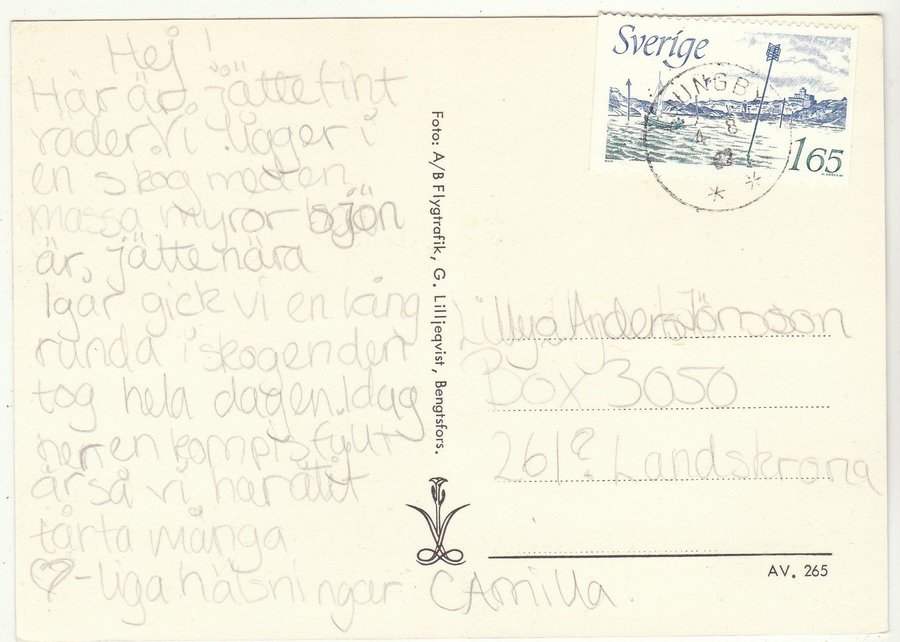 Hej!
Här är jättefint
väder. Vi ligger i
en skog med en
massa myror sjön
är jättenära
Igår gick vi en lång
runda i skogen den
tog hela dagen. Idag
har en kompis fyllt
år så vi har ätit
tårta många
♡-liga hälsningar CAmilla.
Foto: A/B Flygtrafik, G. Lilljeqvist, Bengtsfors.
Sverige
165
LJUNGBY
Jönsson
Box 3050
261? Landskrona
AV. 265